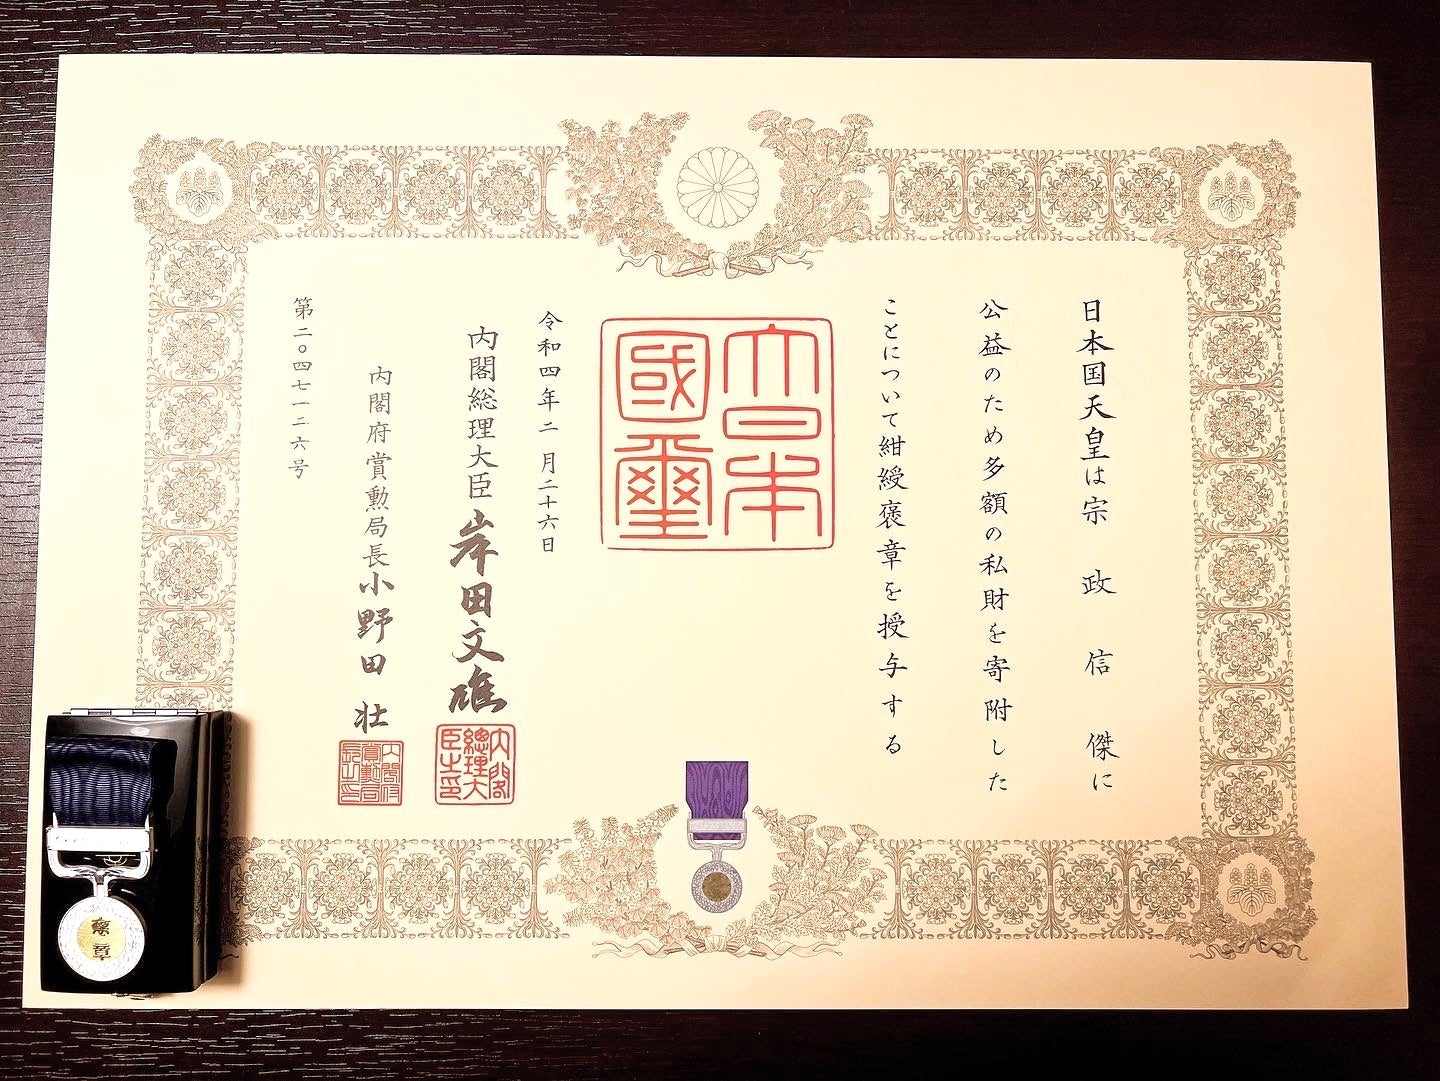 日本国天皇は宗政信傑に
公益のため多額の私財を寄附した
ことについて紺綬褒章を授与する
大日本
國璽
令和四年二月二十六日
内閣総理大臣 岸田文雄
内閣
總理大
臣之印
内閣府賞勲局長 小野田壮
内閣府
賞勲局
長之印
第二〇四七一二六号
褒章